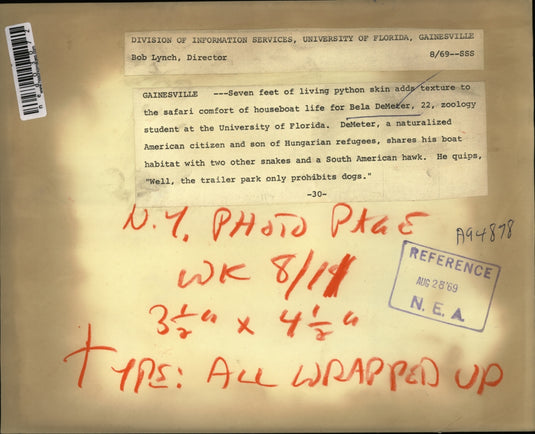 DIVISION OF INFORMATION SERVICES, UNIVERSITY OF FLORIDA, GAINESVILLE
Bob Lynch, Director 8/69--SSS
GAINESVILLE ---Seven feet of living python skin adds texture to
the safari comfort of houseboat life for Bela DeMeter, 22, zoology
student at the University of Florida. DeMeter, a naturalized
American citizen and son of Hungarian refugees, shares his boat
habitat with two other snakes and a South American hawk. He quips,
"Well, the trailer park only prohibits dogs."
-30-
N.Y. PHOTO PAGE
A94878
WK 8/11
REFERENCE
AUG 28 '69
N. E. A.
3 1/2" x 4 1/2"
TYPE: ALL WRAPPED UP